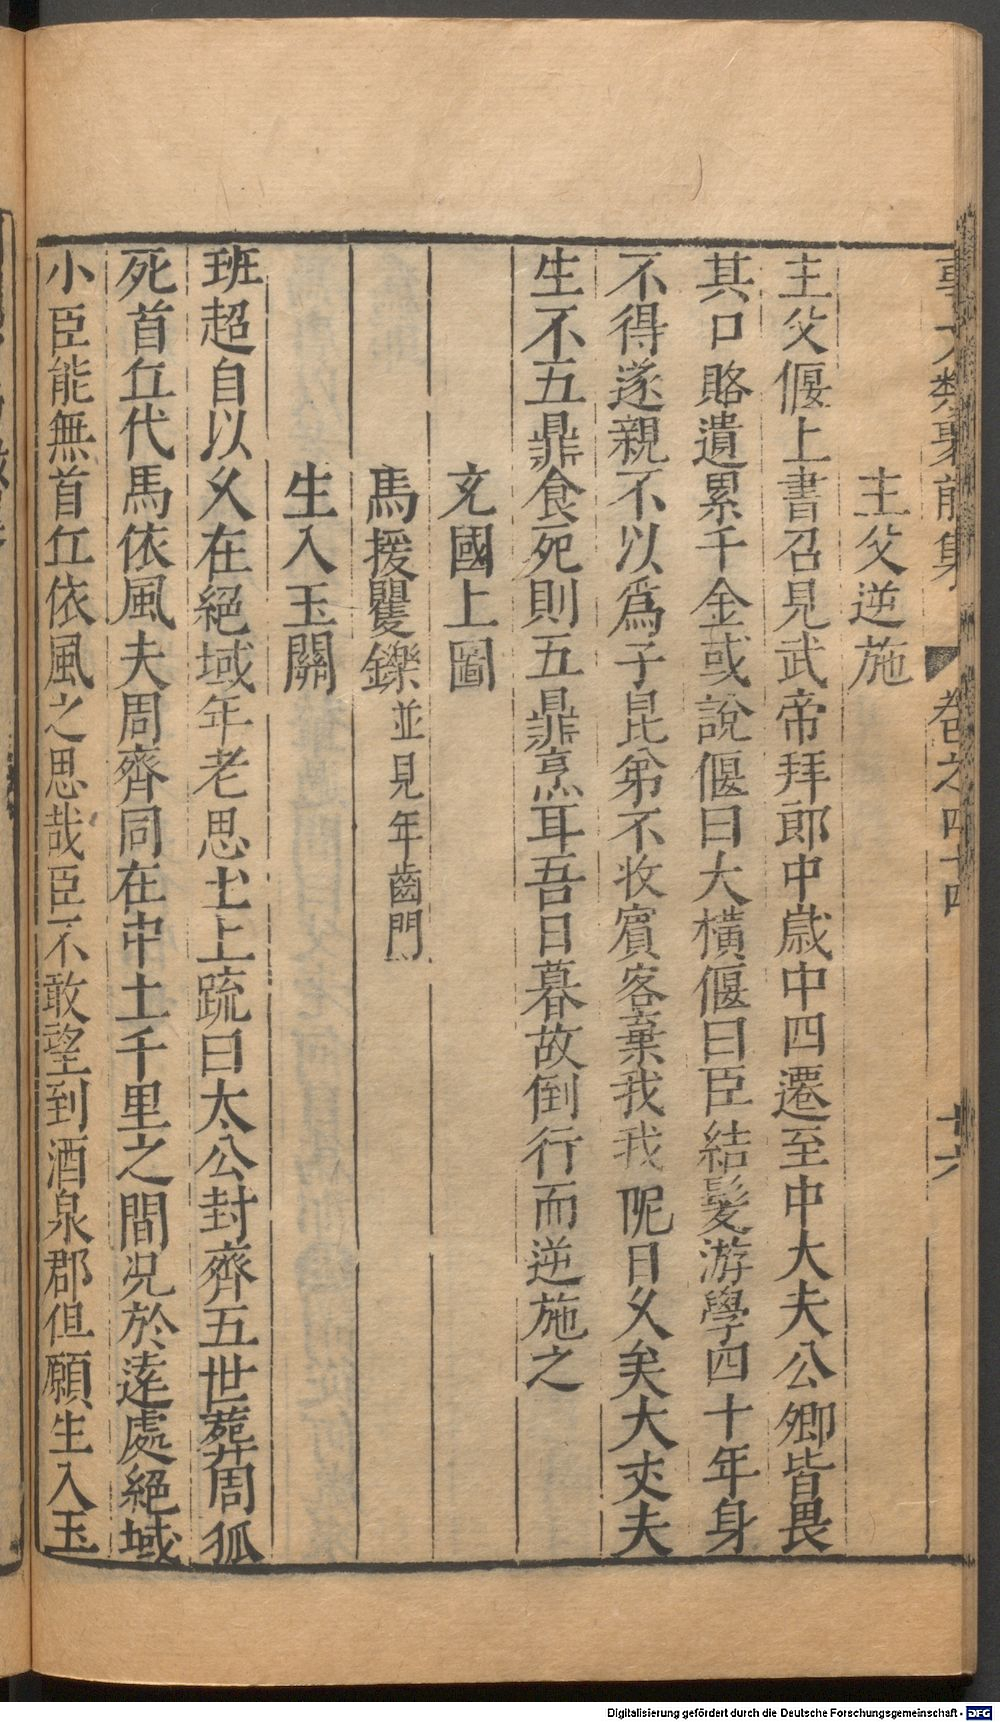 事文類聚前集 卷之四十四 廿六
主父逆施
主父偃上書召見武帝拜郎中歲中四遷至中大夫公卿皆畏
其口賂遺累千金或說偃曰大橫偃曰臣結髮游學四十年身
不得遂親不以爲子昆弟不收賓客棄我我阸日久矣大丈夫
生不五鼎食死則五鼎烹耳吾日暮故倒行而逆施之
充國上圖
馬援矍鑠並見年齒門
生入玉關
班超自以久在絕域年老思土上疏曰太公封齊五世葬周狐
死首丘代馬依風夫周齊同在中土千里之間况於遠處絕域
小臣能無首丘依風之思哉臣不敢望到酒泉郡但願生入玉
Digitalisierung gefördert durch die Deutsche Forschungsgemeinschaft - DFG